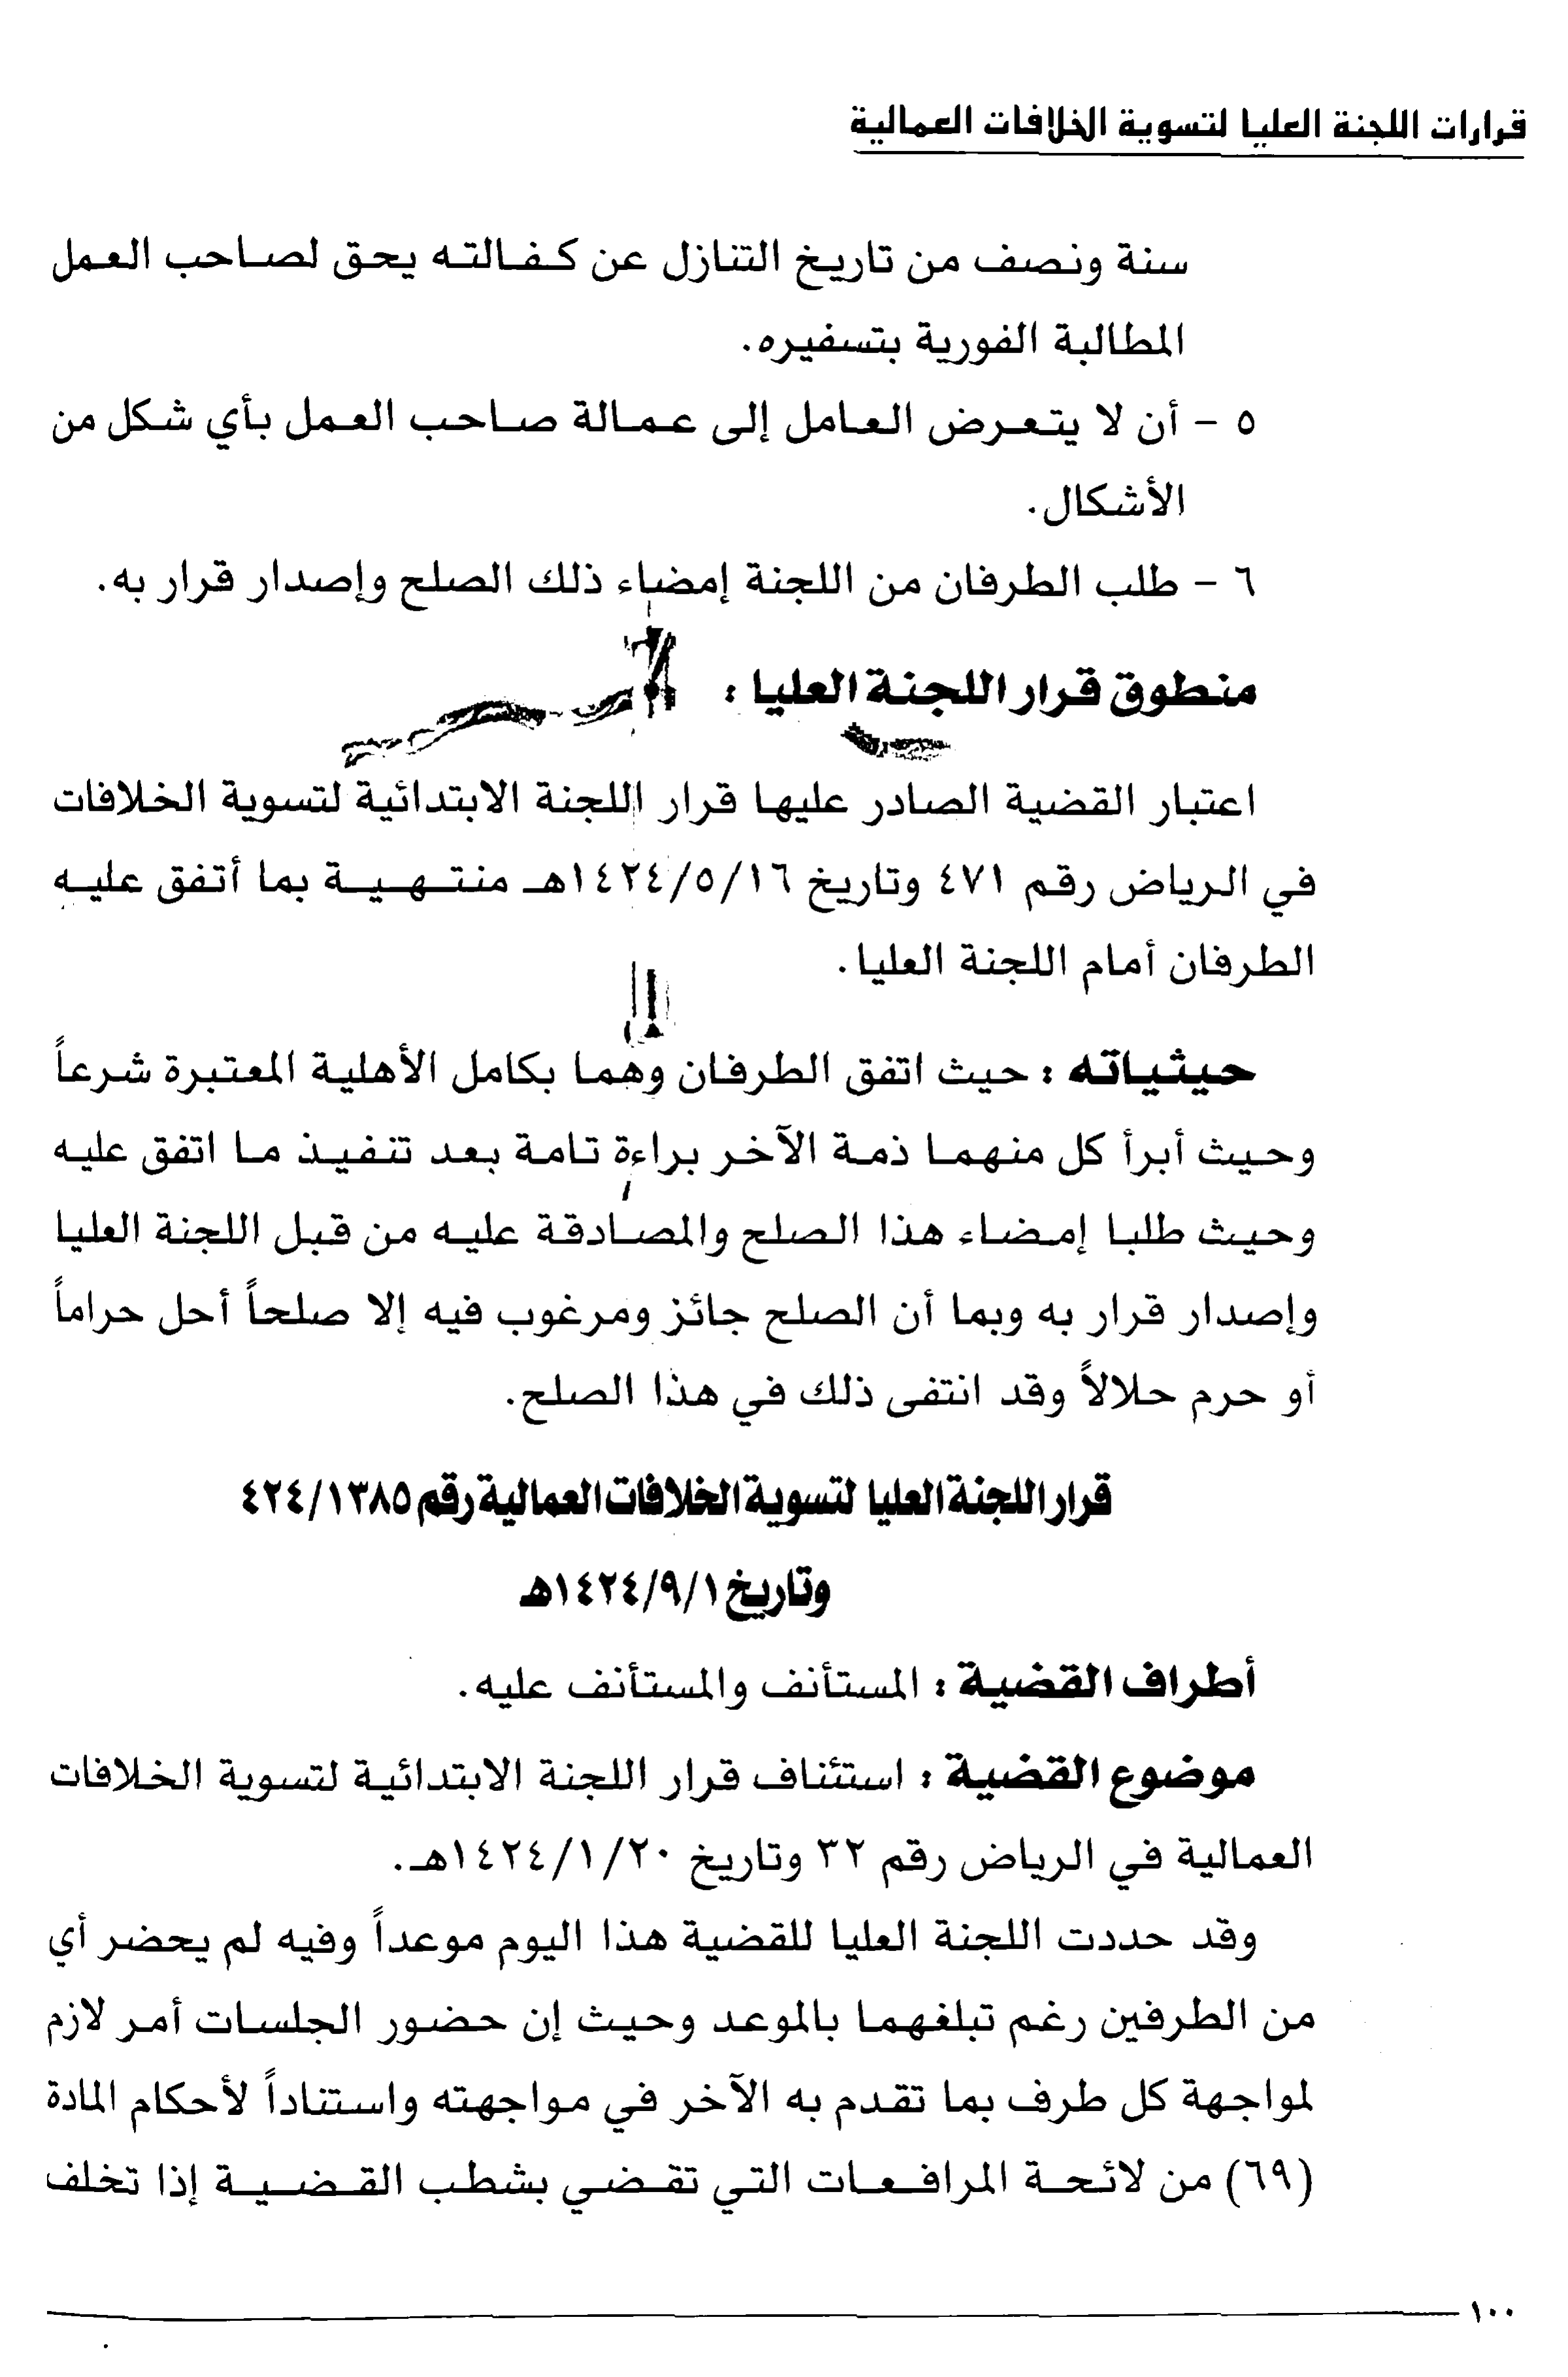 قرارات اللجنة العليا لتسوية الخلافات العمالية
سنة ونصف من تاريخ التنازل عن كفالته يحق لصاحب العمل
المطالبة الفورية بتسفيره.
٥ - أن لا يتعرض العامل إلى عمالة صاحب العمل بأي شكل من
الأشكال.
٦ - طلب الطرفان من اللجنة إمضاء ذلك الصلح وإصدار قرار به.
منطوق قرار اللجنة العليا :
اعتبار القضية الصادر عليها قرار اللجنة الابتدائية لتسوية الخلافات
في الرياض رقم ٤٧١ وتاريخ ١٤٢٤/٥/١٦هـ منتهية بما أتفق عليه
الطرفان أمام اللجنة العليا.
حيثياته : حيث اتفق الطرفان وهما بكامل الأهلية المعتبرة شرعاً
وحيث أبرأ كل منهما ذمة الآخر براءة تامة بعد تنفيذ ما اتفق عليه
وحيث طلبا إمضاء هذا الصلح والمصادقة عليه من قبل اللجنة العليا
وإصدار قرار به وبما أن الصلح جائز ومرغوب فيه إلا صلحاً أحل حراماً
أو حرم حلالاً وقد انتفى ذلك في هذا الصلح.
قرار اللجنة العليا لتسوية الخلافات العمالية رقم ٤٢٤/١٣٨٥
وتاريخ ١٤٢٤/٩/١هـ
أطراف القضية : المستأنف والمستأنف عليه.
موضوع القضية : استئناف قرار اللجنة الابتدائية لتسوية الخلافات
العمالية في الرياض رقم ٣٢ وتاريخ ١٤٢٤/١/٢٠هـ.
وقد حددت اللجنة العليا للقضية هذا اليوم موعداً وفيه لم يحضر أي
من الطرفين رغم تبلغهما بالموعد وحيث إن حضور الجلسات أمر لازم
لمواجهة كل طرف بما تقدم به الآخر في مواجهته واستناداً لأحكام المادة
(٦٩) من لائحة المرافعات التي تقضي بشطب القضية إذا تخلف
١٠٠